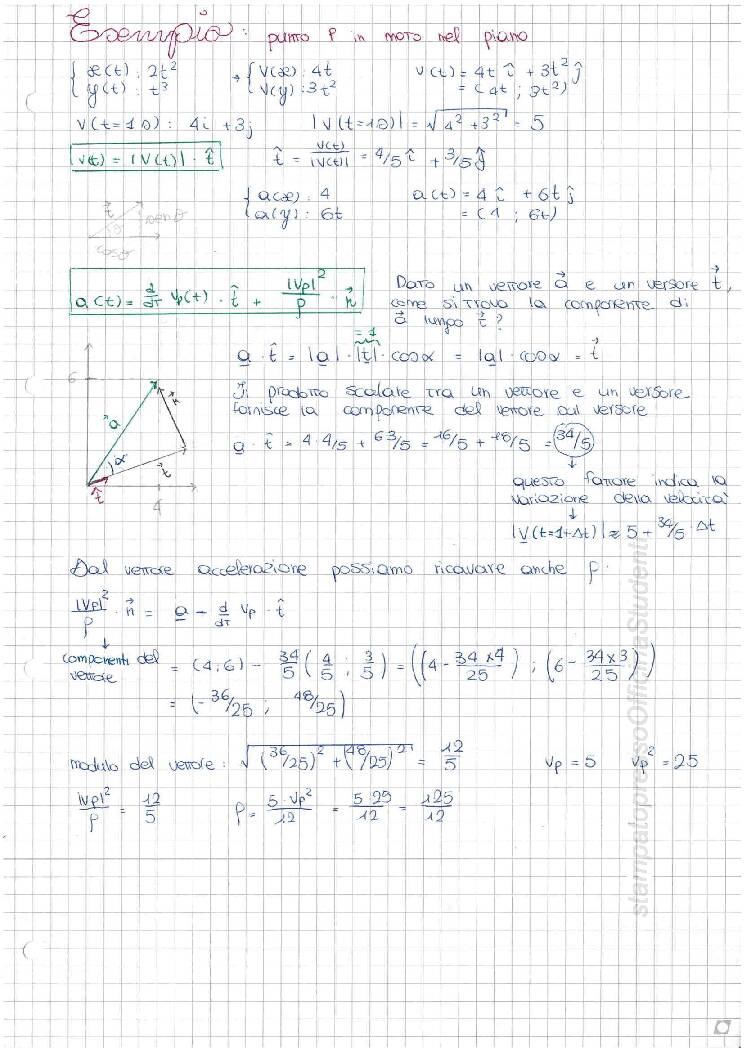 Esempio: punto P in moto nel piano
{ x(t): 2t² → { v(x): 4t v(t) = 4t î + 3t² ĵ
y(t): t³ v(y): 3t² = (4t ; 3t²)
v(t=1s): 4i + 3j |v(t=1s)| = √(4² + 3²) = 5
v(t) = |v(t)| · t̂ t̂ = v(t)/|v(t)| = 4/5 î + 3/5 ĵ
{ a(x): 4 a(t) = 4 î + 6t ĵ
a(y): 6t = (1 ; 6t)
t⃗ θ senθ
cosθ
a(t) = d/dt vp(t) · t̂ + |vp|²/ρ · n⃗
Dato un vettore a⃗ e un versore t⃗,
come si trova la componente di
a⃗ lungo t⃗?
= 1
a · t̂ = |a| · |t| · cosα = |a| · cosα = t⃗
Il prodotto scalare tra un vettore e un versore
fornisce la componente del vettore sul versore
a · t̂ = 4·4/5 + 6 3/5 = 16/5 + 18/5 = 34/5
6 a⃗ n⃗ α t⃗ t̂ 4
questo fattore indica la
variazione della velocità
|v(t=1+Δt)| ≈ 5 + 34/5 · Δt
Dal vettore accelerazione possiamo ricavare anche ρ.
|vp|²/ρ · n⃗ = a - d/dt vp · t̂
componenti del
vettore = (4;6) - 34/5 (4/5 ; 3/5) = ((4 - 34×4/25) ; (6 - 34×3/25))
= (-36/25 ; 48/25)
modulo del vettore: √((36/25)² + (48/25)²) = 12/5 vp = 5 vp² = 25
|vp|²/ρ = 12/5 ρ = 5·vp²/12 = 5·25/12 = 125/12
stampatopressoOfficinaStudenti